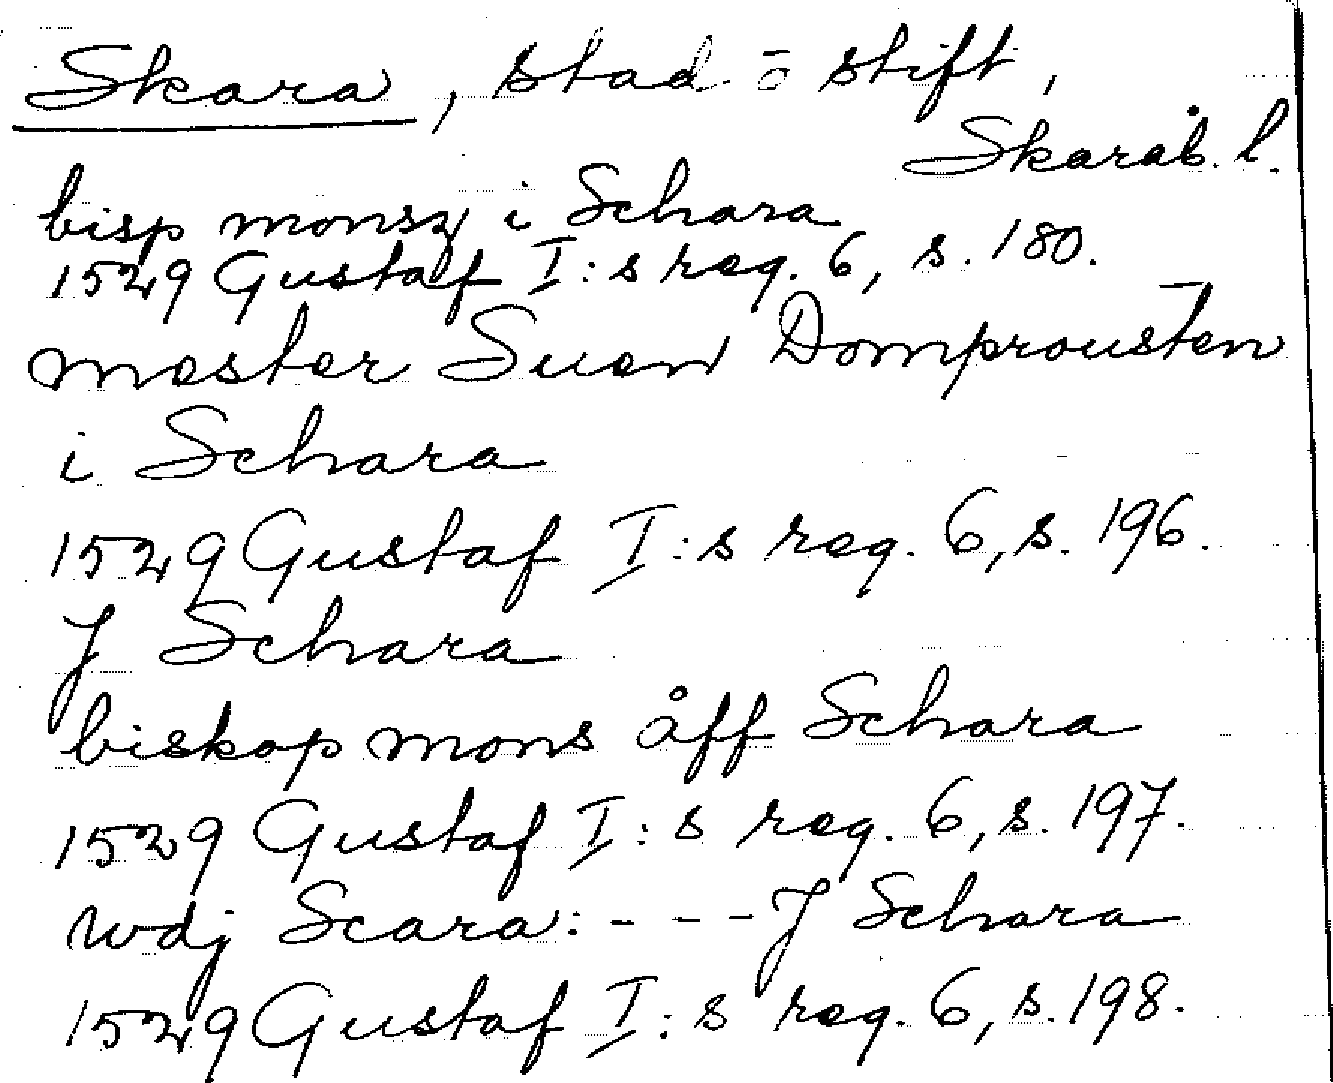 Skara, stad o stift,
Skarab. l.
bisp monsz i Schara
1529 Gustaf I:s reg. 6, s. 180.
mester Suen Domprousten
i Schara
1529 Gustaf I:s reg. 6, s. 196.
J Schara
biskop mons åff Schara
1529 Gustaf I:s reg. 6, s. 197.
wdj Scara: - - - J Schara
1529 Gustaf I:s reg. 6, s. 198.